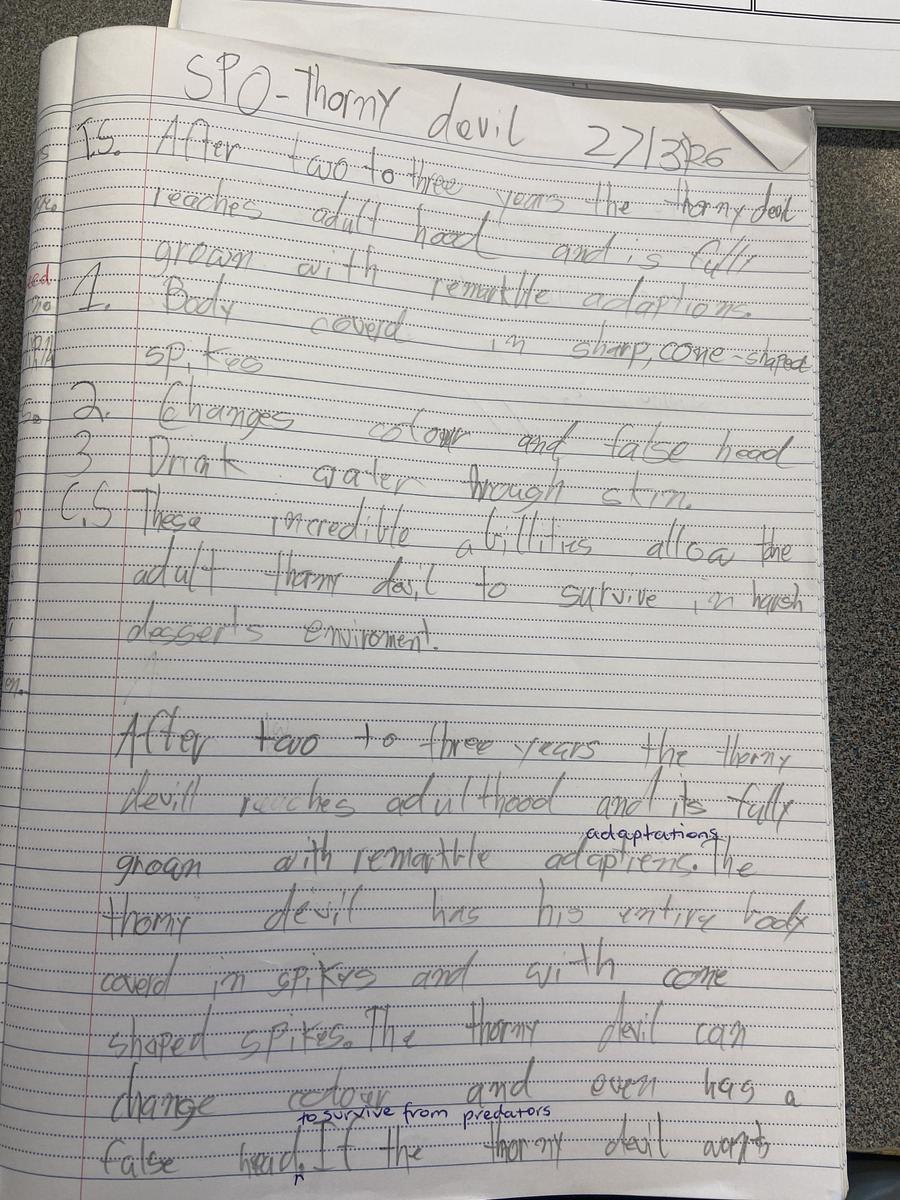 SPO-Thorny devil 27/3/26
T.S. After two to three years the thorny devil
reaches adult hood and is fully
grown with remarkble adaptions.
1. Body coverd in sharp, cone-shaped
spikes
2. Changes colour and false head
3 Drink water through skin.
C.S These incredible abillities allow the
adult thorny devil to survive in harsh
desserts enviroment.
After two to three years the thorny
devill reaches adulthood and its fully
grown with remarkble adaptiens. The
adaptations
thorny devil has his entire body
coverd in spikys and with cone
shaped spikes. The thorny devil can
change colour and even has a
to survive from predators
false head. If the thorny devil wants